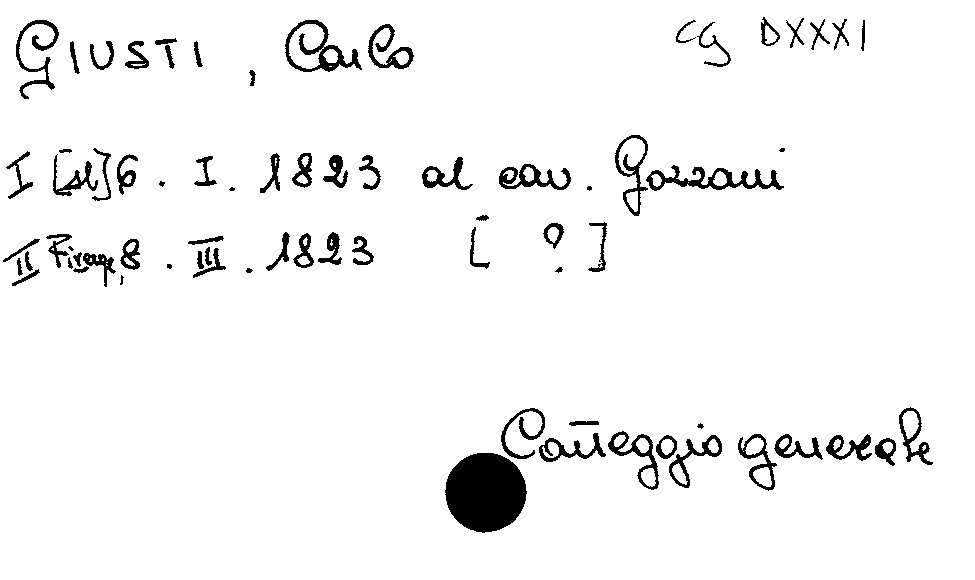 GIUSTI, Carlo CG DXXXI
I [sl] 6. I. 1823 al cav. Gozzani
II Firenze, 8. III. 1823 [ ? ]
Carteggio generale